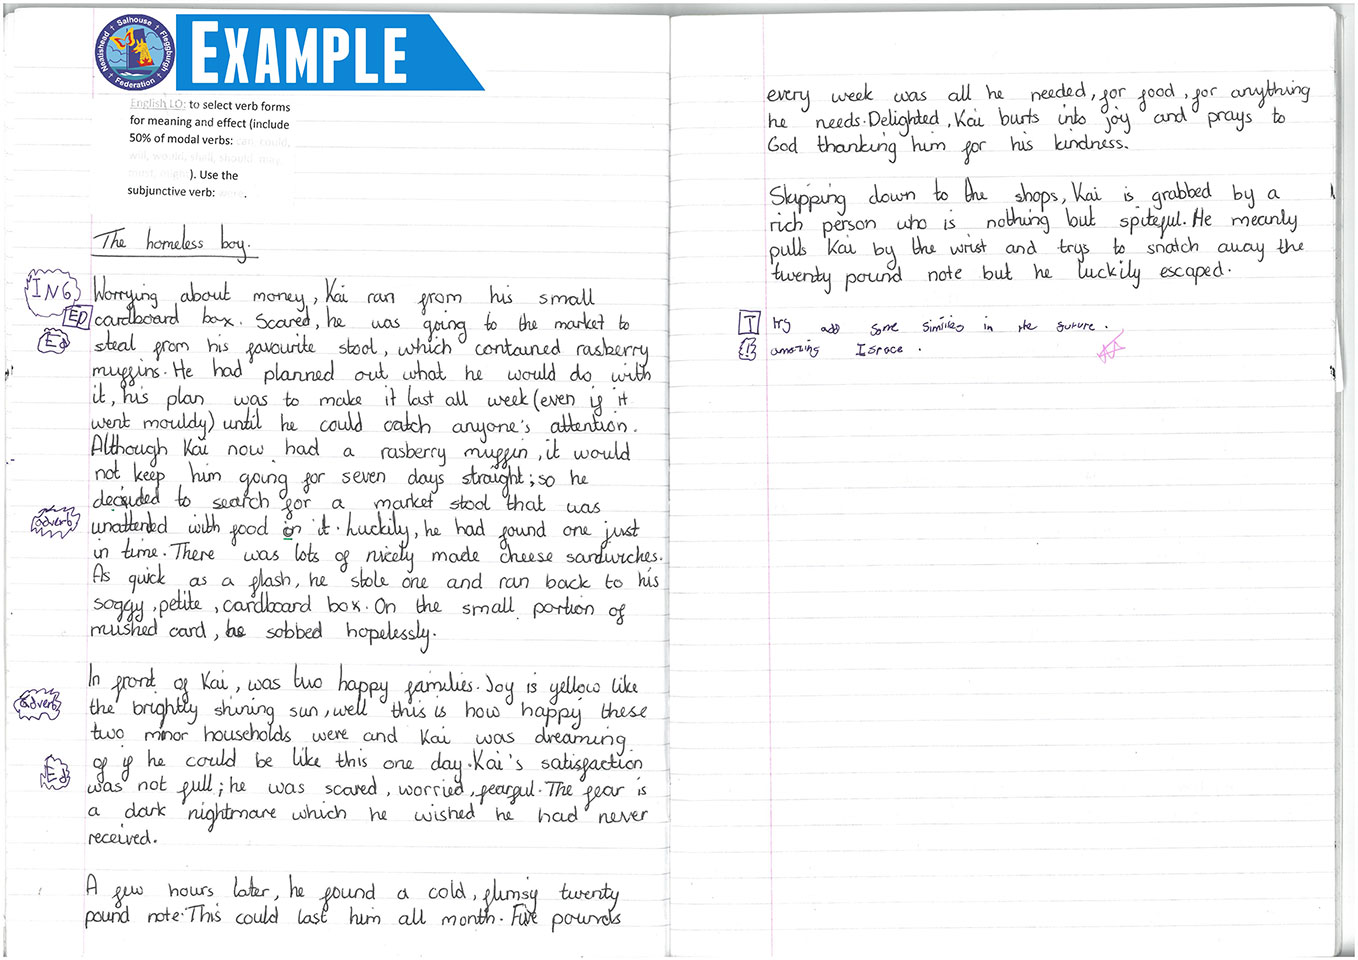 Salhouse
Neatishead
Fleggburgh
Federation
EXAMPLE
English LO: to select verb forms
for meaning and effect (include
50% of modal verbs: can, could,
will, would, shall, should, may,
must, ought). Use the
subjunctive verb: were.
The homeless boy.
ING
Worrying about money, Kai ran from his small
ED
cardboard box. Scared, he was going to the market to
Ed
steal from his favourite stool, which contained rasberry
muffins. He had planned out what he would do with
it, his plan was to make it last all week (even if it
went mouldy) until he could catch anyone's attention.
Although Kai now had a rasberry muffin, it would
not keep him going for seven days straight; so he
decided to search for a market stool that was
adverb
unattended with food in it. Luckily, he had found one just
in time. There was lots of nicely made cheese sandwiches.
As quick as a flash, he stole one and ran back to his
soggy, petite, cardboard box. On the small portion of
mushed card, he sobbed hopelessly.
In front of Kai, was two happy families. Joy is yellow like
adverb
the brightly shining sun, well this is how happy these
two minor households were and Kai was dreaming
of if he could be like this one day. Kai's satisfaction
Ed
was not full; he was scared, worried, fearful. The fear is
a dark nightmare which he wished he had never
received.
A few hours later, he found a cold, flimsy twenty
pound note. This could last him all month. Five pounds
every week was all he needed, for food, for anything
he needs. Delighted, Kai burts into joy and prays to
God thanking him for his kindness.
Skipping down to the shops, Kai is grabbed by a
rich person who is nothing but spiteful. He meanly
pulls Kai by the wrist and trys to snatch away the
twenty pound note but he luckily escaped.
T try add some similes in the future.
amazing ISPACE.